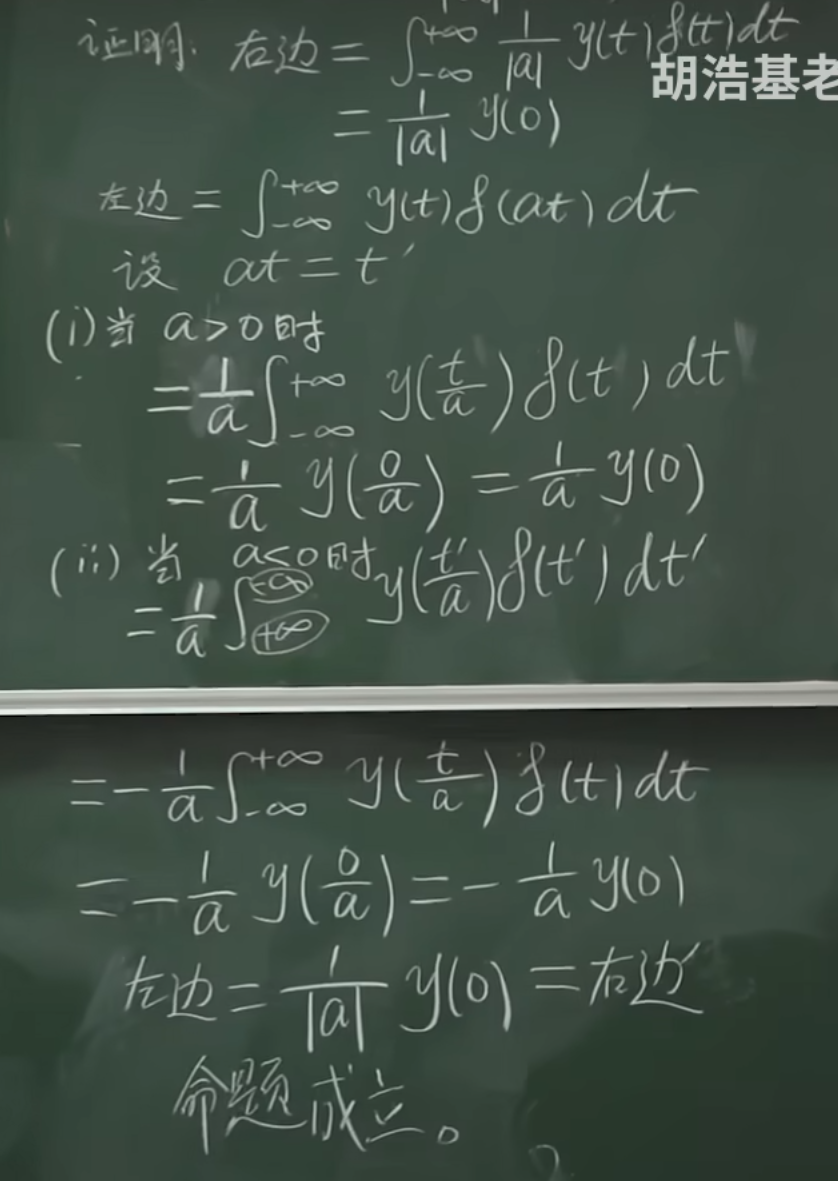 证明: 右边 = ∫_{-∞}^{+∞} \frac{1}{|a|} y(t) δ(t) dt
胡浩基老
= \frac{1}{|a|} y(0)
左边 = ∫_{-∞}^{+∞} y(t) δ(at) dt
设 at = t′
(i) 当 a>0时
= \frac{1}{a} ∫_{-∞}^{+∞} y(\frac{t}{a}) δ(t) dt
= \frac{1}{a} y(\frac{0}{a}) = \frac{1}{a} y(0)
(ii) 当 a<0时
= \frac{1}{a} ∫_{+∞}^{-∞} y(\frac{t′}{a}) δ(t′) dt′
= -\frac{1}{a} ∫_{-∞}^{+∞} y(\frac{t}{a}) δ(t) dt
= -\frac{1}{a} y(\frac{0}{a}) = -\frac{1}{a} y(0)
左边 = \frac{1}{|a|} y(0) = 右边
命题成立。